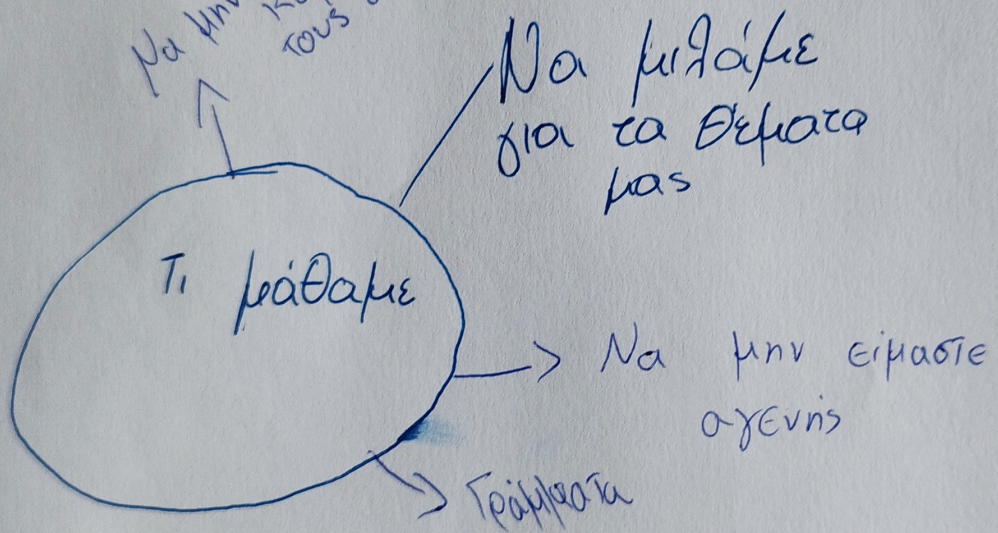 Να μην
τους
Να μιλάμε
για τα θέματα
μας
Τι μάθαμε
Να μην είμαστε
αγενής
Γράμματα